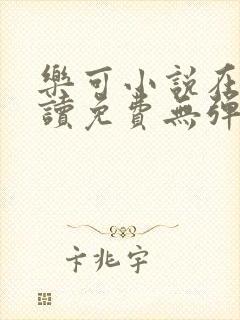 樂可小說在
讀免費無彈
卡兆宇